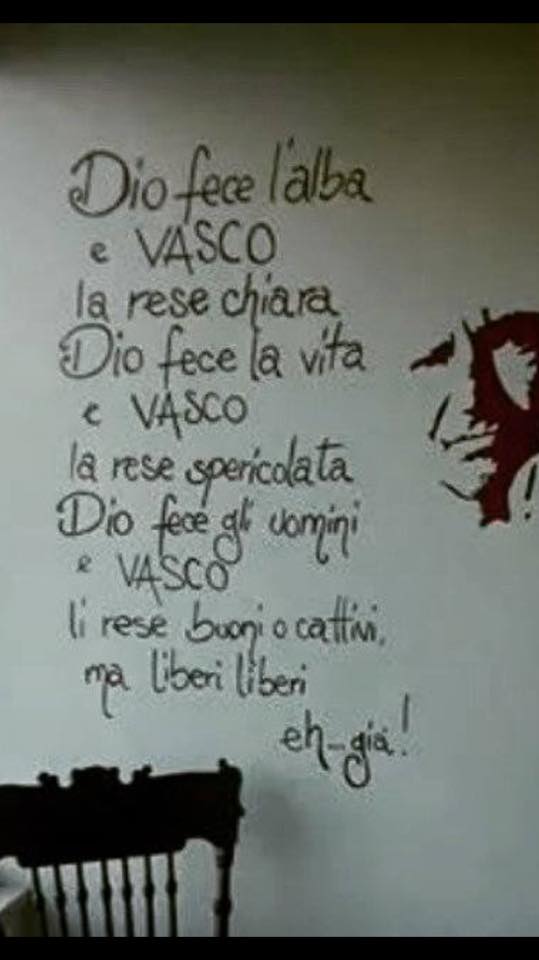 Dio fece l'alba
e VASCO
la rese chiara
Dio fece la vita
e VASCO
la rese spericolata
Dio fece gli uomini
e VASCO
li rese buoni o cattivi,
ma liberi liberi
eh-già!